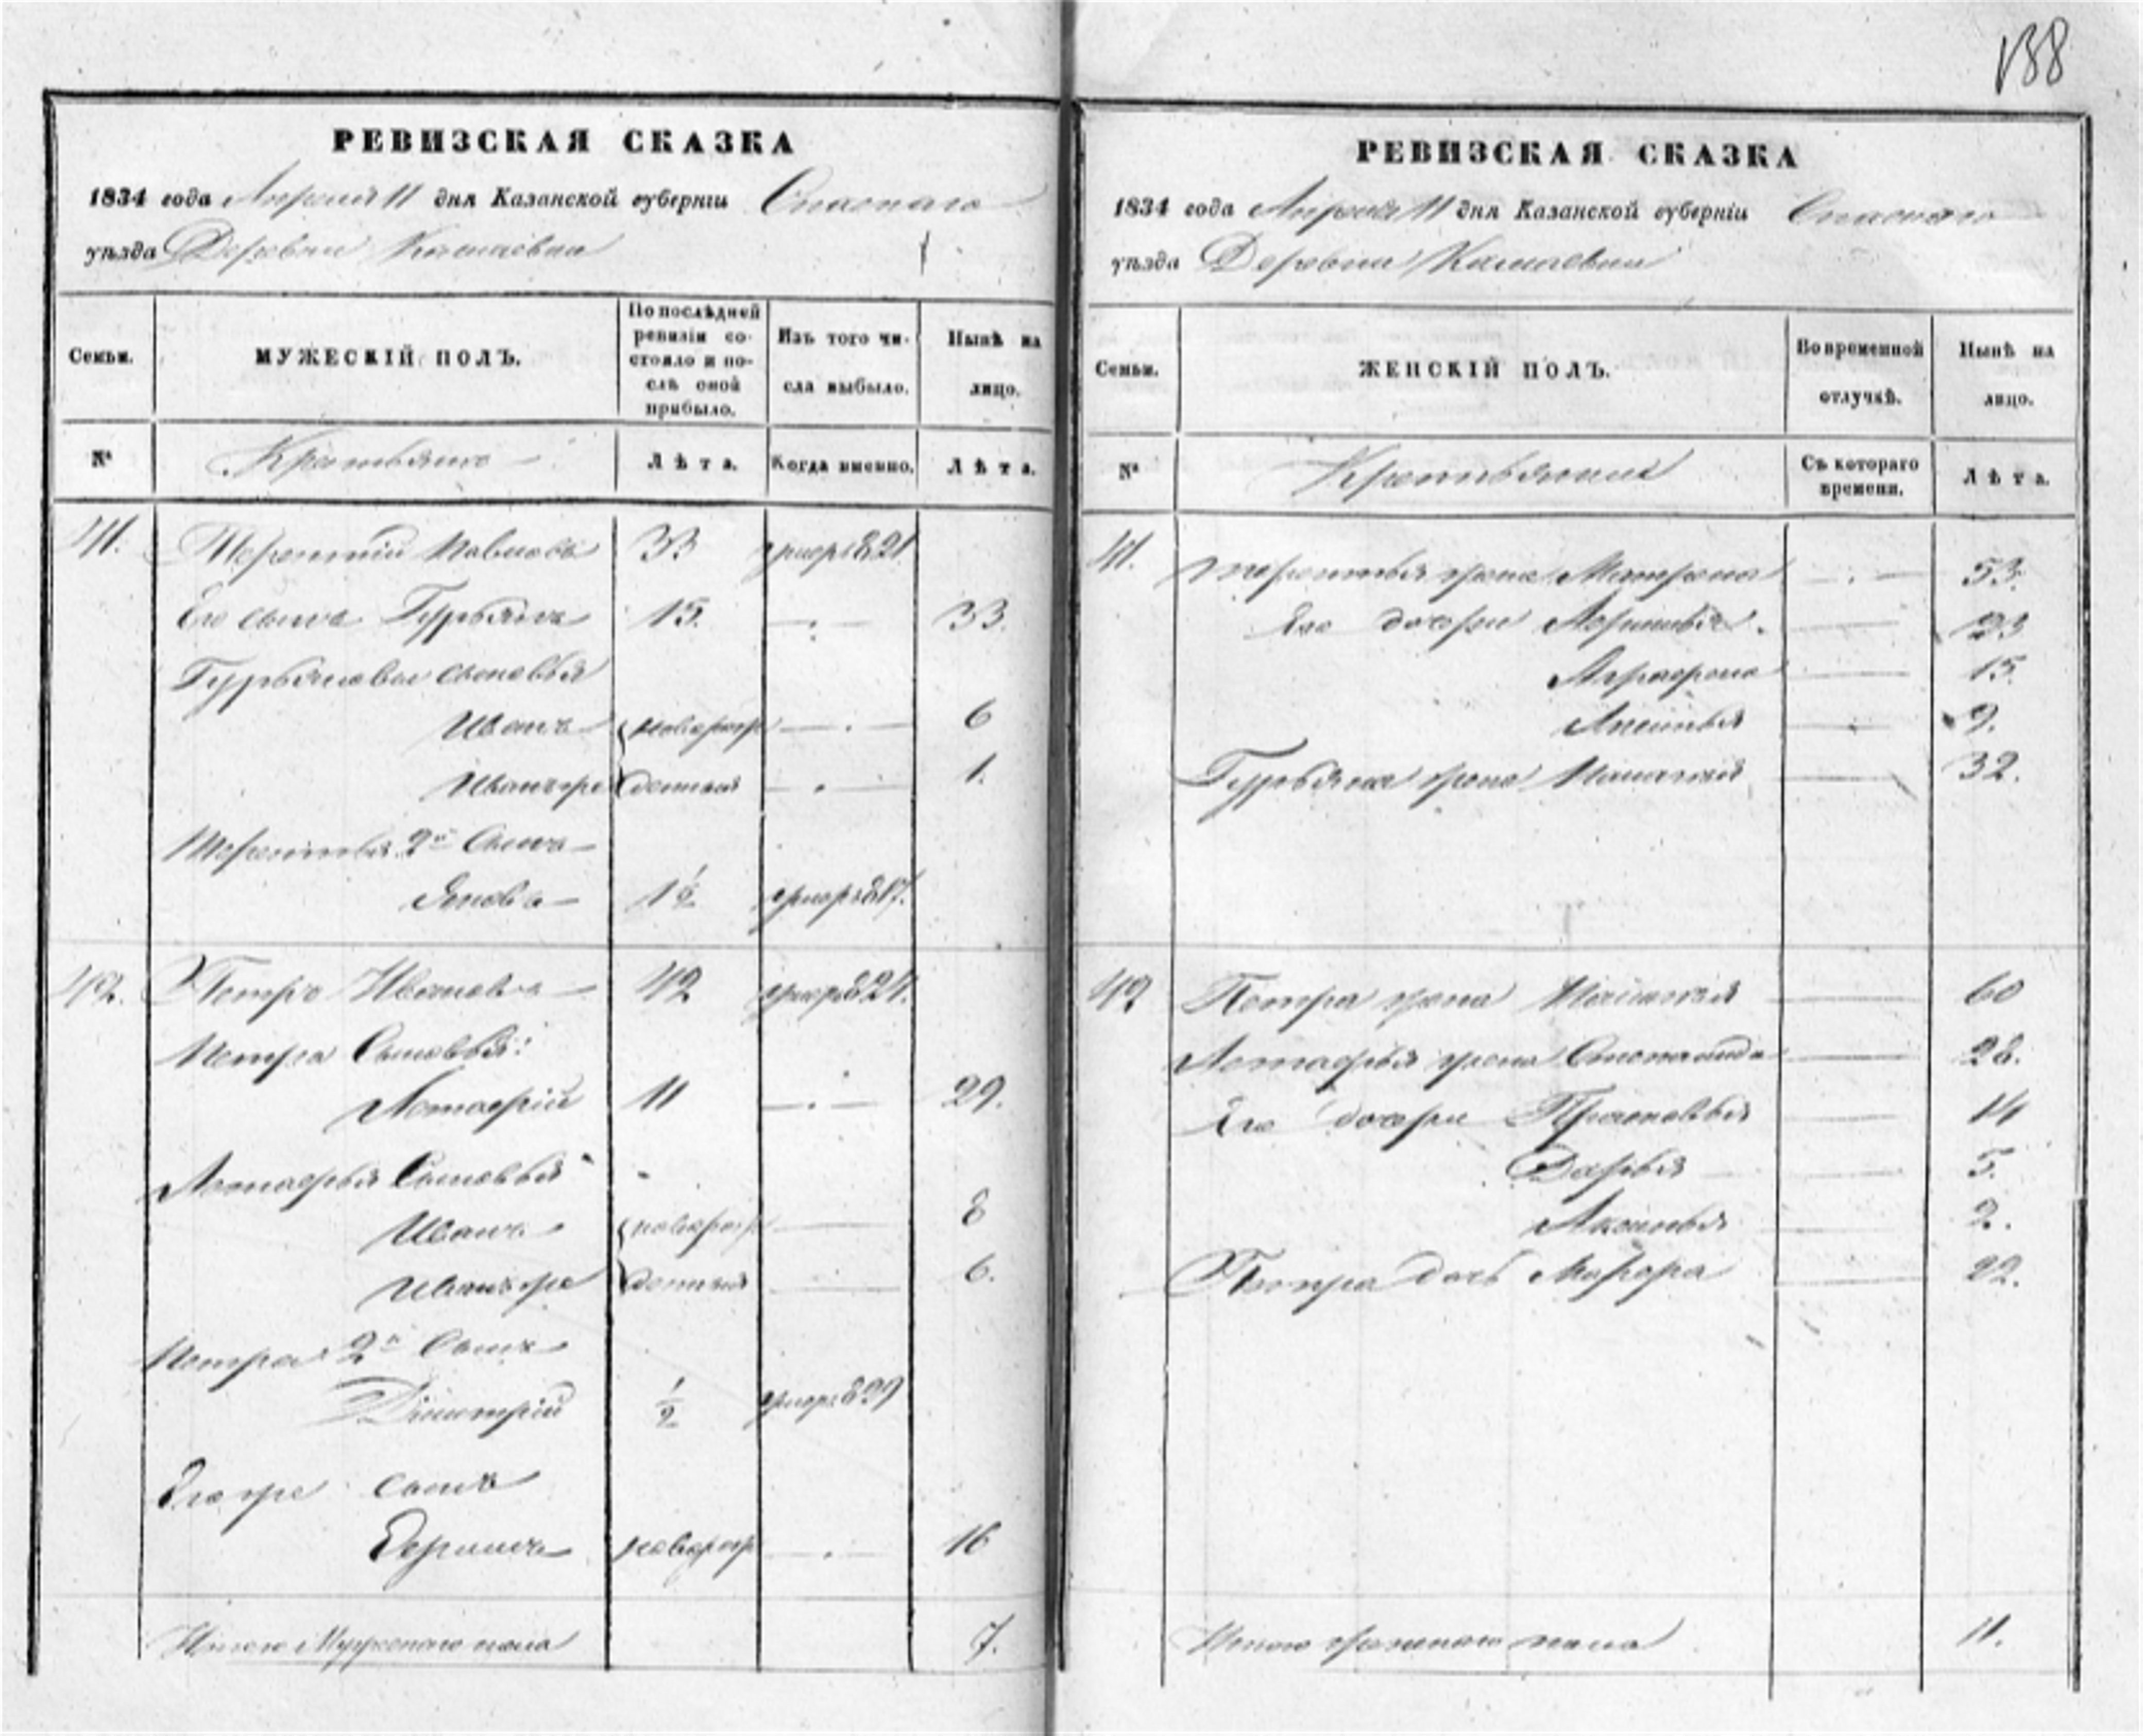 138
РЕВИЗСКАЯ СКАЗКА
1834 года Апреля 11 дня Казанской губернiи Спаскаго
уѣзда Деревни
Семьи.
МУЖЕСКІЙ ПОЛЪ.
По послѣдней ревизiи состояло и послѣ оной прибыло.
Изъ того числа выбыло.
Нынѣ на лицо.
№
Крестьяне
Лѣта.
Когда именно.
Лѣта.
41. Терентий Павловъ 33 821
Его сынъ Гурьянъ 15. 33.
Гурьяновы сыновья
Иванъ новорож 6
Иванъ же денныя 1.
Терентья 2й Сынъ
Яковъ 1½ 817.
42. Петръ Ивановъ 42 824.
Петра Сыновья:
Астафiй 11 29.
Астафья Сыновья
Иванъ новорож 8
Иванъ же денныя 6.
Петра 2й Сынъ
Димитрiй ½ 829
Его же сынъ
новорож 16
Итого Мужескаго пола 7.
РЕВИЗСКАЯ СКАЗКА
1834 года Апреля 11 дня Казанской губернiи Спаскаго
уѣзда Деревни
Семьи.
ЖЕНСКІЙ ПОЛЪ.
Во временной отлучкѣ.
Нынѣ на лицо.
№
Крестьянки
Съ котораго времени.
Лѣта.
41. Терентья жена Матрена 53.
Его дочери 23
Аграфена 15.
9.
Гурьяна жена Наталья 32.
42 Петра жена 60
Астафья жена Степанида 28.
Его дочери Прасковья 14
Дарья 5.
Аксинья 2.
Петра дочь 22.
Итого женскаго пола 11.